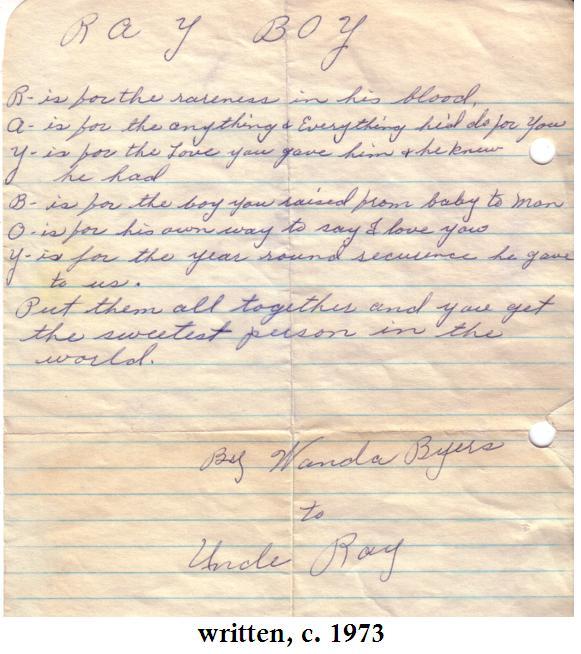 RAY BOY
R- is for the rareness in his blood,
A- is for the anything & Everything he'd do for You
Y- is for the Love you gave him & he knew
he had
B- is for the boy you raised from baby to man
O- is for his own way to say I love you
Y- is for the year round recurence he gave
to us.
Put them all together and you get
the sweetest person in the
world.
By Wanda Byers
to
Uncle Ray
written, c. 1973